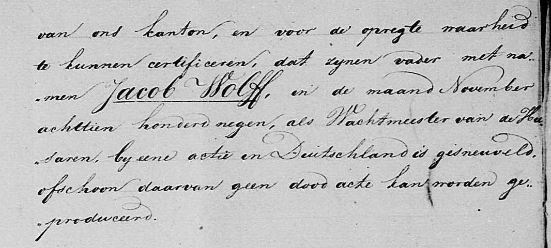 van ons kanton, en voor de opregte waarheid
te kunnen certificeren, dat zynen vader met na-
-men Jacob Wolff, in de maand November
achttien honderd negen, als Wachtmeester van de Hu
saren, by eene actie in Duitschland is gisneuveld,
ofschoon daarvan geen dood acte kan worden ge-
-produceerd.